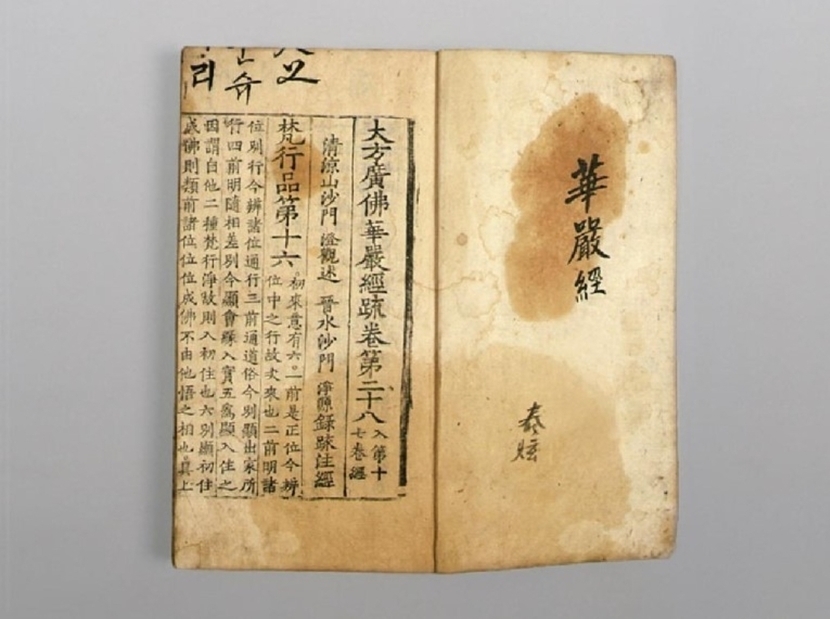 華嚴經
泰
大方廣佛華嚴經䟽卷第二十八 入第十
七卷經
清涼山沙門 澄觀述 晉水沙門 淨源錄疏注經
梵行品第十六 初來意有六。一前是正位今辨
位中之行故次來也二前明諸
位別行今辨諸位通行三前通道俗今別顯出家所
行四前明隨相差別今顯會緣入實五為顯入住之
因謂自他二種梵行淨故則入初住也六別顯初住
成佛則類前諸位位位成佛不由他悟之相也真上
슈
리